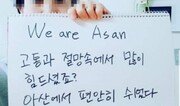 We are Asan
고통과 절망속에서 많이
힘드셨죠?
아산에서 편안히 쉬었다